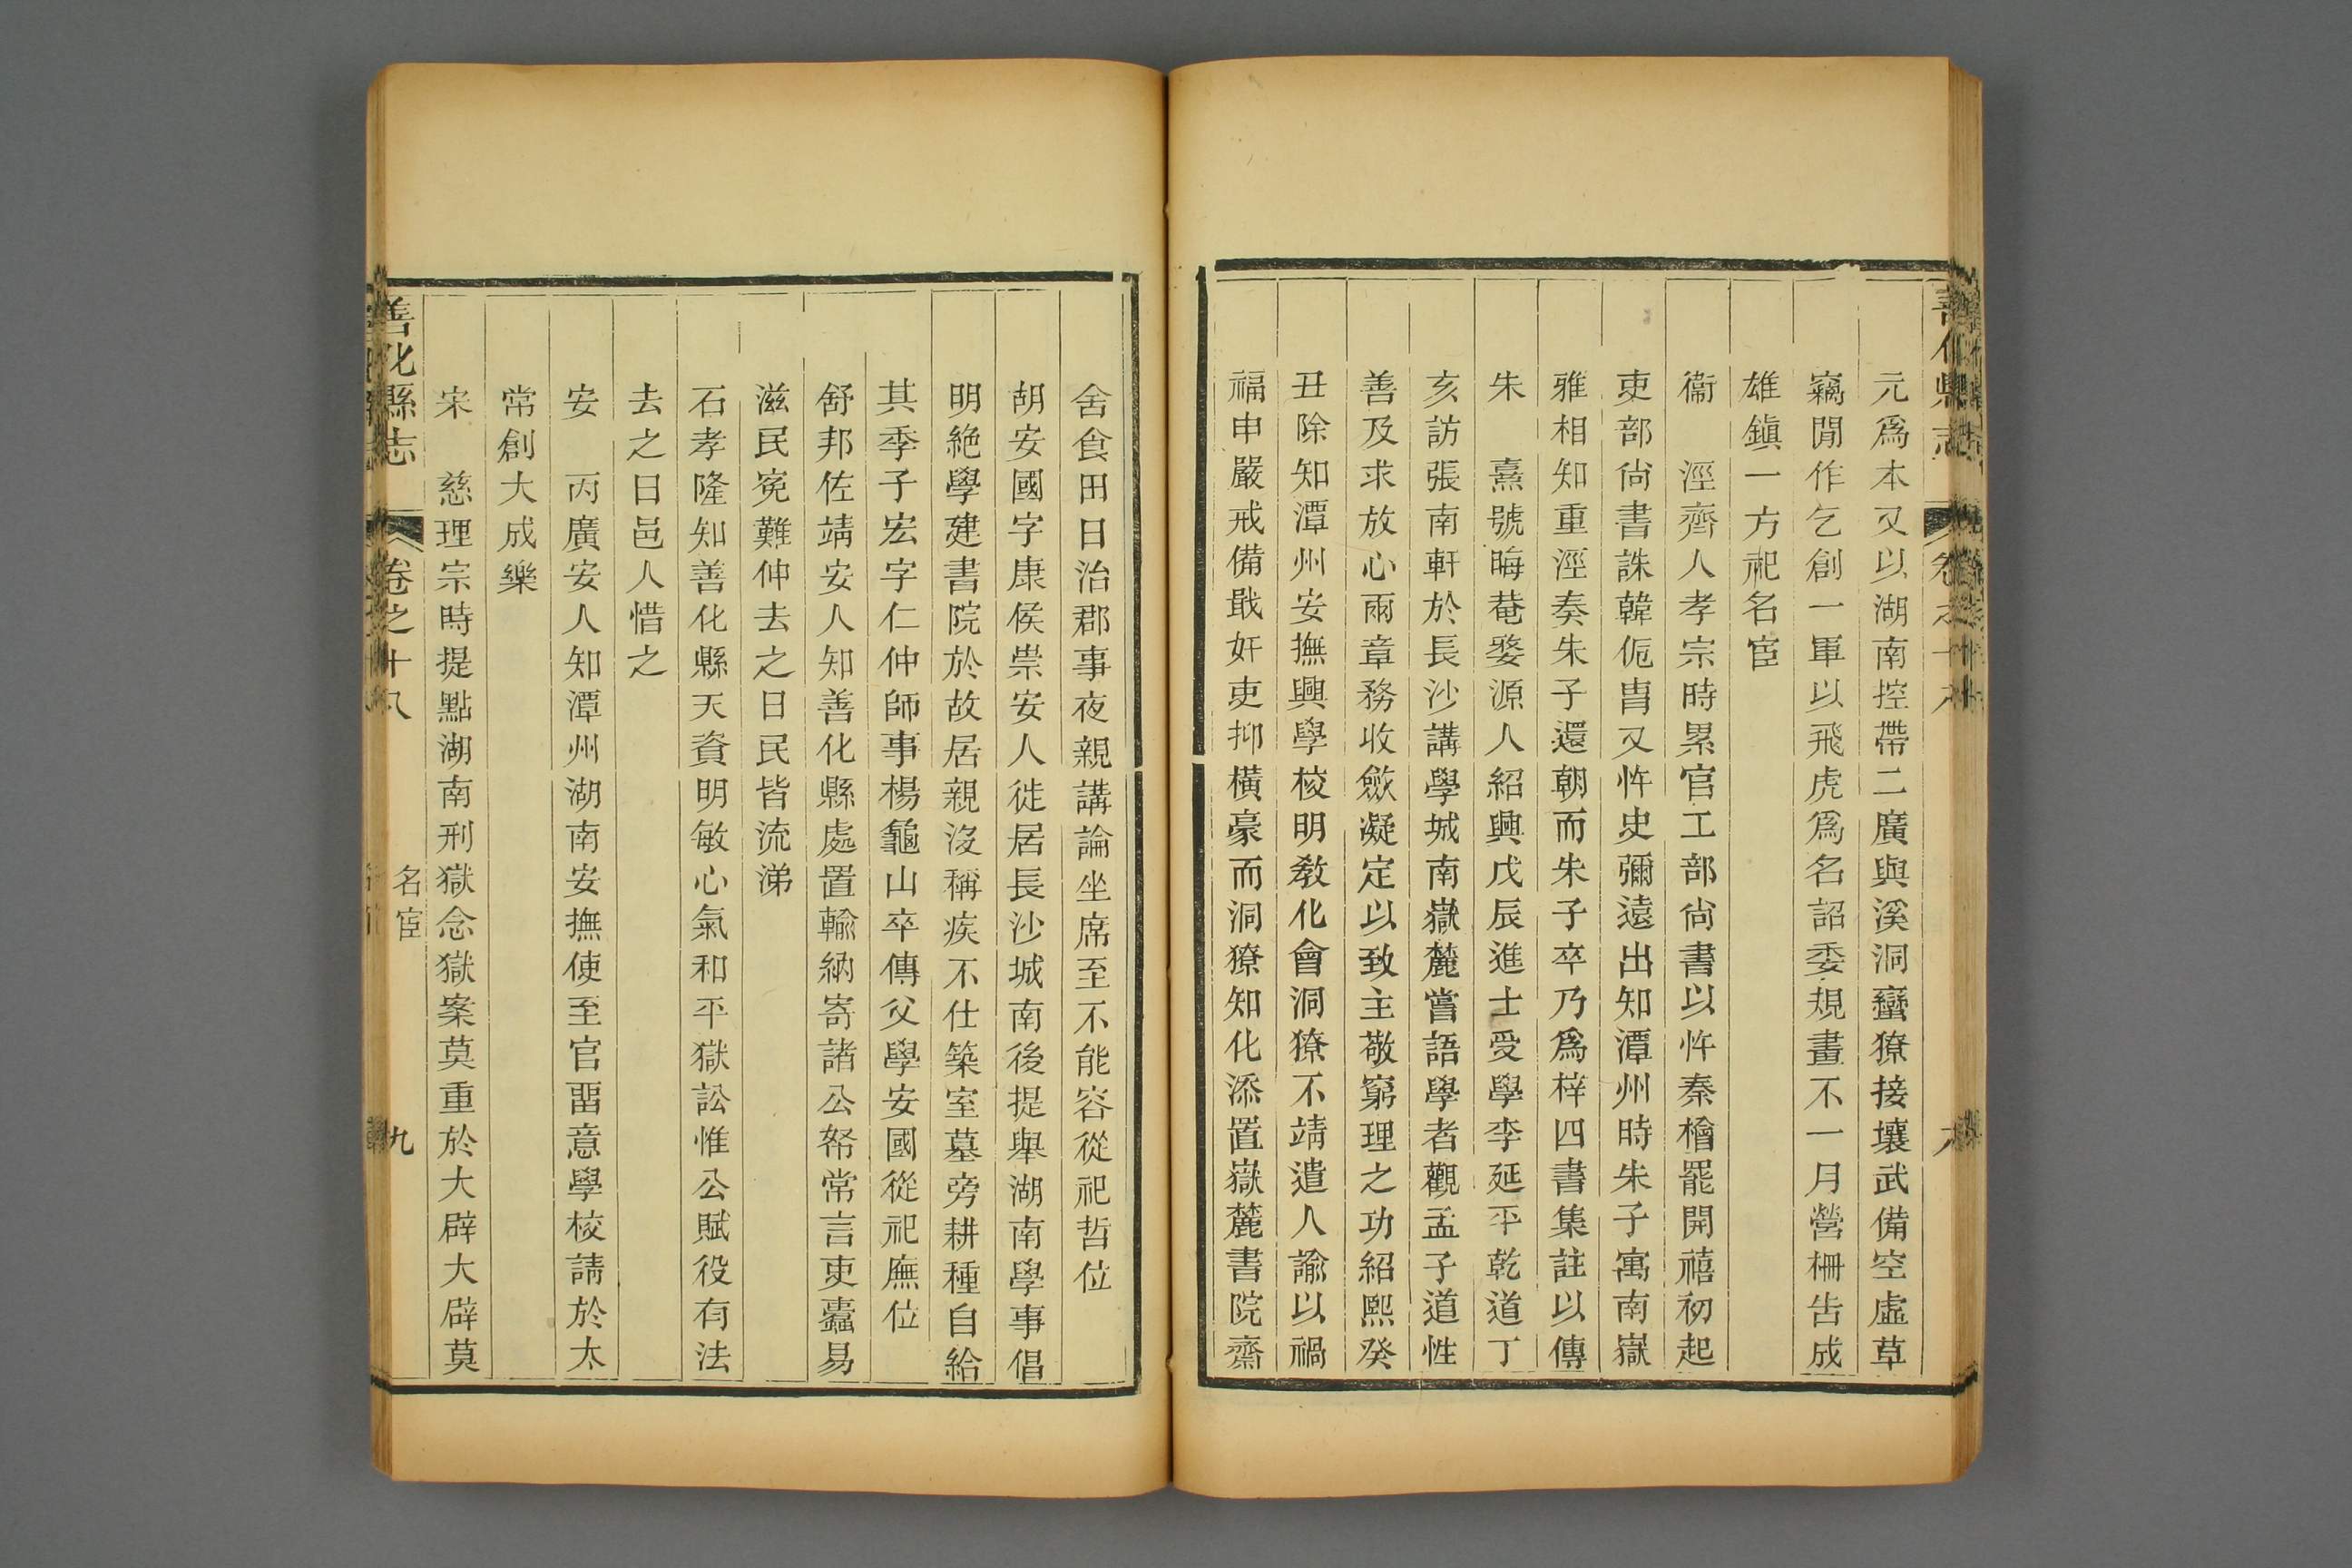 元爲本又以湖南控帶二廣與溪洞蠻獠接壤武備空虛草
竊閒作乞創一軍以飛虎爲名詔委規畫不一月營柵告成
雄鎭一方祀名宦
衞　涇齊人孝宗時累官工部尙書以忤秦檜罷開禧初起
吏部尙書誅韓侂胄又忤史彌遠出知潭州時朱子寓南嶽
雅相知重涇奏朱子還朝而朱子卒乃爲梓四書集註以傳
朱　熹號晦菴婺源人紹興戊辰進士受學李延平乾道丁
亥訪張南軒於長沙講學城南嶽麓嘗語學者觀孟子道性
善及求放心兩章務收斂凝定以致主敬窮理之功紹熙癸
丑除知潭州安撫興學校明教化會洞獠不靖遣人諭以禍
福申嚴戒備戢奸吏抑橫豪而洞獠知化添置嶽麓書院齋
舍食田日治郡事夜親講論坐席至不能容從祀哲位
胡安國字康侯崇安人徙居長沙城南後提舉湖南學事倡
明絶學建書院於故居親沒稱疾不仕築室墓旁耕種自給
其季子宏字仁仲師事楊龜山卒傳父學安國從祀廡位
舒邦佐靖安人知善化縣處置輸納寄諸公帑常言吏蠹易
滋民寃難伸去之日民皆流涕
石孝隆知善化縣天資明敏心氣和平獄訟惟公賦役有法
去之日邑人惜之
安　丙廣安人知潭州湖南安撫使至官畱意學校請於太
常創大成樂
宋　慈理宗時提點湖南刑獄念獄案莫重於大辟大辟莫
善化縣志　卷之十八　名宦　九